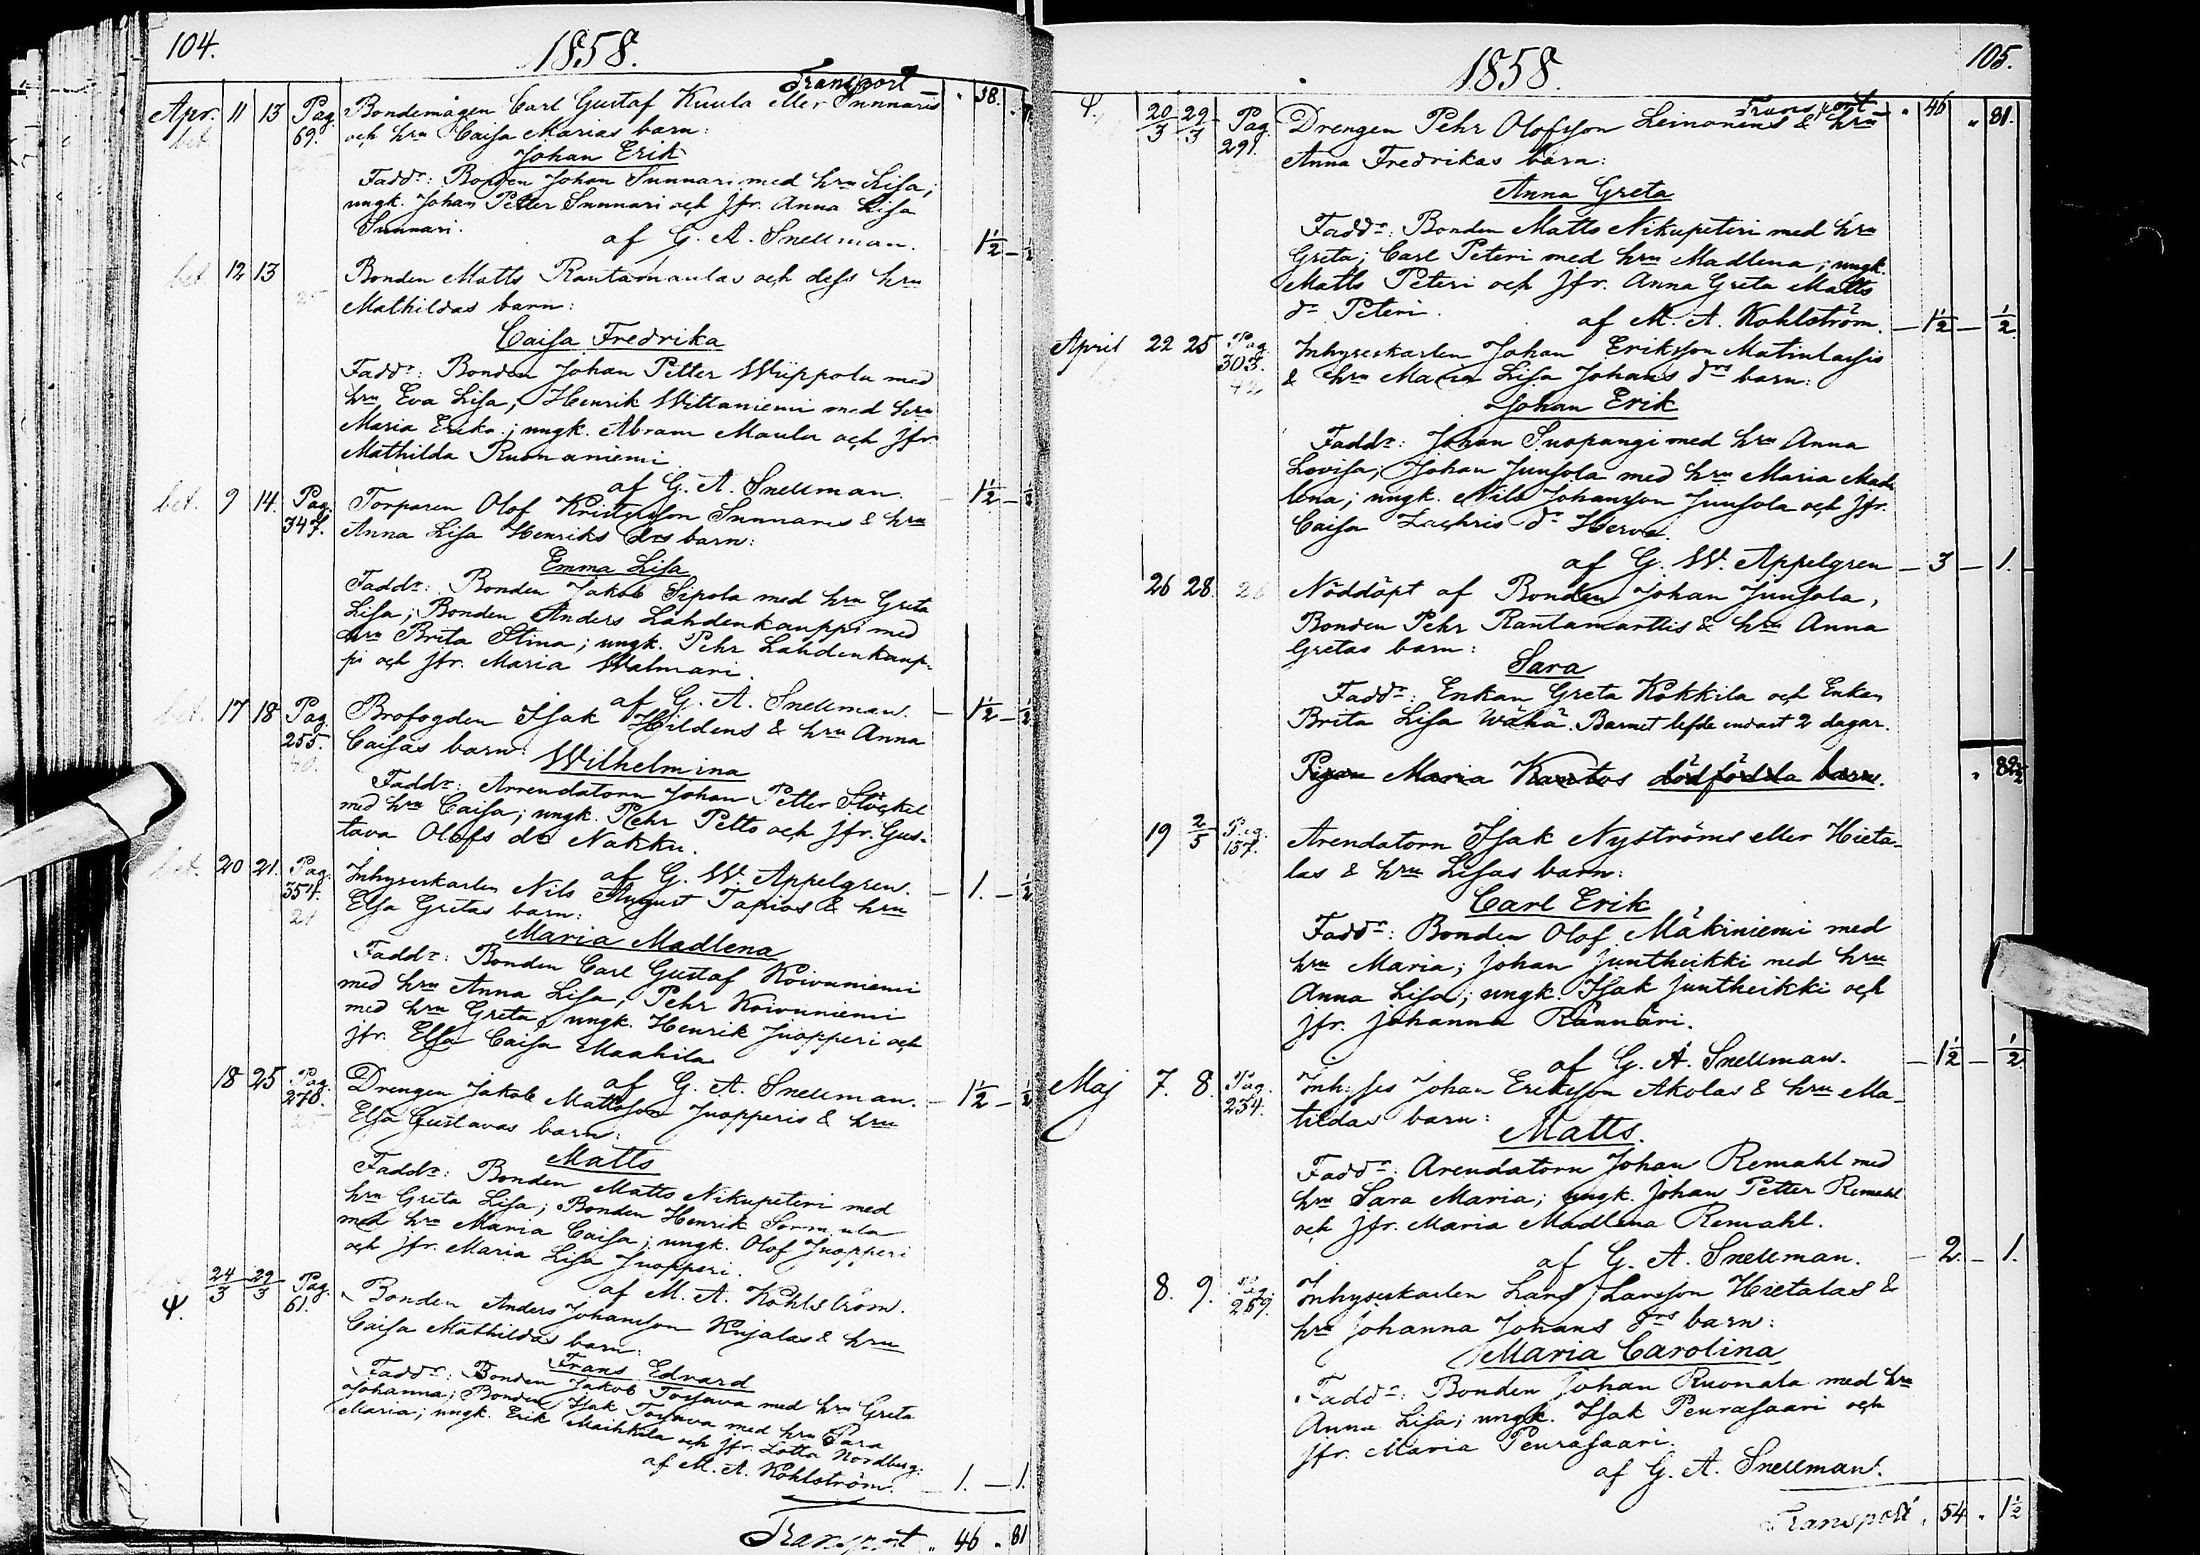 104.
1858.
Transport
38.
Apr. 11 13 Pag. 69.
bet.
Bondemågen Carl Gustaf Kuula eller Sunnaris
och hru Caisa Marias barn:
Johan Erik
Faddr: Bonden Johan Sunnari med hru Lisa;
ungk. Johan Petter Sunnari och Jfr. Anna Lisa
Sunnari.
af G. A. Snellman. 1½ ½
bet 12 13
Bonden Matts Rantamaulas och dess hru
Mathildas barn:
Caisa Fredrika
Faddr: Bonden Johan Petter Wiippola med
hru Eva Lisa; Henrik Wittaniemi med hru
Maria Erika; ungk. Abram Maula och Jfr
Mathilda Ruonaniemi
af G. A. Snellman. 1½ ½
bet. 9 14. Pag. 347.
Torparen Olof Kristersson Sunnaris & hru
Anna Lisa Henriks drs barn:
Emma Lisa
Faddr: Bonden Jakob Sipola med hru Greta
Lisa; Bonden Anders Lahdenkauppi med
hru Brita Stina; ungk. Pehr Lahdenkaup-
pi och Jfr. Maria Walmari.
af G. A. Snellman. 1½ ½
bet. 17 18 Pag. 255.
Brofogden Isak Hildens & hru Anna
Caisas barn: Wilhelmina
Faddr: Arrendatorn Johan Petter Stöckel
med hru Caisa; ungk. Pehr Petts och Jfr. Gus-
tava Olofs dr Nakku.
af G. W. Appelgren. 1. ½
bet. 20 21. Pag. 357.
Inhyseskarlen Nils August Tapios & hru
Elsa Gretas barn:
Maria Madlena
Faddr: Bonden Carl Gustaf Koivuniemi
med hru Anna Lisa; Pehr Koivuniemi
med hru Greta; ungk. Henrik Juopperi och
Jfr. Elsa Caisa Maahila
af G. A. Snellman. 1½ ½
18 25 Pag. 276.
Drengen Jakob Mattsson Juopperis & hru
Elsa Gustavas barn:
Matts
Faddr: Bonden Matts Nikupeteri med
hru Greta Lisa; Bonden Henrik Sormula
med hru Maria Caisa; ungk. Olof Juopperi
och Jfr. Maria Lisa Juopperi.
af M. A. Kohlström.
24/3 29/3 Pag. 61.
Bonden Anders Johansson Kujalas & hru
Caisa Mathildas barn:
Frans Edvard
Faddr: Bonden Jakob Torvava med hru Greta
Johanna; Bonden Isak Torvava med hru Sara
Maria; ungk. Erik Maihkila och Jfr. Lotta Nordberg.
af M. A. Kohlström. 1. 1.
Transport 46 81
1858.
105.
Transport 46 81.
20/3 29/3 Pag. 291.
Drengen Pehr Olofsson Leinonens & hru
Anna Fredrikas barn:
Anna Greta
Faddr: Bonden Matts Nikupeteri med hru
Greta; Carl Peteri med hru Madlena; ungk.
Matts Peteri och Jfr. Anna Greta Matts
dr Peteri.
af M. A. Kohlström. 1½ ½
April 22 25 Pag. 303.
Inhyseskarlen Johan Eriksson Matinlassis
& hru Maria Lisa Johans drs barn:
Johan Erik
Faddr: Johan Suopangi med hru Anna
Lovisa; Johan Junsola med hru Maria Mad-
lena; ungk. Nils Johansson Junsola och Jfr.
Caisa Zachris dr Herva.
af G. W. Appelgren 3 1.
26 28.
Nöddöpt af Bonden Johan Junsola,
Bonden Pehr Rantamarttis & hru Anna
Gretas barn:
Sara
Faddr: Enkan Greta Kokkila och Enkan
Brita Lisa Wähä. Barnet lefde endast 2 dagar.
Pigan Maria Kantos dödfödda barn.
82½
19 2/5 Pag. 157.
Arendatorn Isak Nyströms eller Hieta-
las & hru Lisas barn:
Carl Erik
Faddr: Bonden Olof Mäkiniemi med
hru Maria; Johan Juntheikki med hru
Anna Lisa; ungk. Isak Juntheikki och
Jfr. Johanna Rannäri.
af G. A. Snellman. 1½ ½
Maj 7. 8. Pag. 234.
Inhyses Johan Eriksson Akolas & hru Ma-
tildas barn:
Matts.
Faddr: Arendatorn Johan Remahl med
hru Sara Maria; ungk. Johan Petter Remahl
och Jfr. Maria Madlena Remahl.
af G. A. Snellman. 2. 1.
8. 9. Pag. 269.
Inhyseskarlen Lars Larsson Hietalas &
hru Johanna Johans drs barn:
Maria Carolina
Faddr: Bonden Johan Ruonala med hru
Anna Lisa; ungk. Isak Peurasaari och
Jfr. Maria Peurasaari.
af G. A. Snellman.
Transport 54 1½